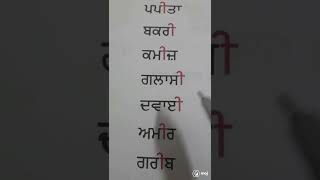 ਪਪੀਤਾ
ਬਕਰੀ
ਕਮੀਜ਼
ਗਲਾਸੀ
ਦਵਾਈ
ਅਮੀਰ
ਗਰੀਬ
moj